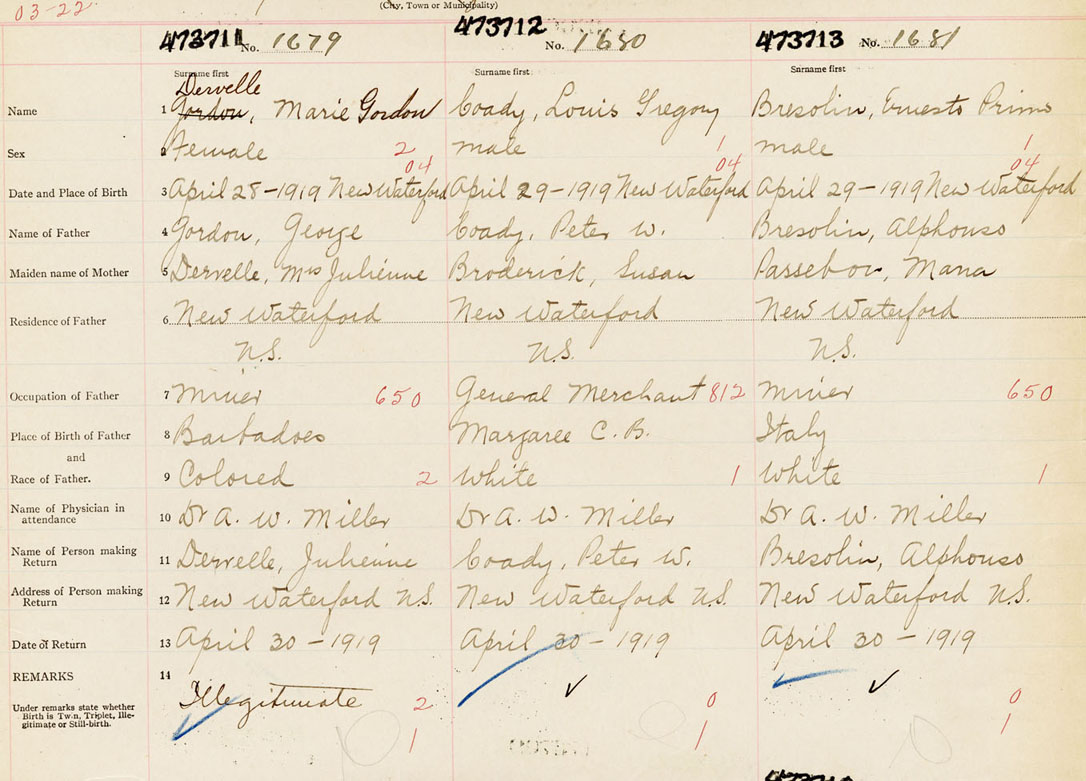 (City, Town or Municipality)
03-22
473711 No. 1679 473712 No. 1680 473713 No. 1681
Surname first Surname first Surname first
Dervelle
Name 1 Gordon, Marie Gordon Coady, Louis Gregory Bresolin, Ernesto Primo
Sex 2 Female 2 male 1 male 1
04 04 04
Date and Place of Birth 3 April 28-1919 New Waterford April 29-1919 New Waterford April 29-1919 New Waterford
Name of Father 4 Gordon, George Coady, Peter W. Bresolin, Alphonso
Maiden name of Mother 5 Dervelle, Mrs Julienne Broderick, Susan Maria
Residence of Father 6 New Waterford New Waterford New Waterford
N.S. N.S. N.S.
Occupation of Father 7 Miner 650 General Merchant 812 Miner 650
Place of Birth of Father 8 Barbadoes Margaree C.B. Italy
and
Race of Father. 9 Colored 2 White 1 White 1
Name of Physician in
attendance 10 Dr A. W. Miller Dr A. W. Miller Dr A. W. Miller
Name of Person making
Return 11 Dervelle, Julienne Coady, Peter W. Bresolin, Alphonso
Address of Person making
Return 12 New Waterford N.S. New Waterford N.S. New Waterford N.S.
Date of Return 13 April 30-1919 April 30-1919 April 30-1919
REMARKS 14
Illegitimate 2 0 0
Under remarks state whether
Birth is Twin, Triplet, Ille-
gitimate or Still-birth.
1 1 1